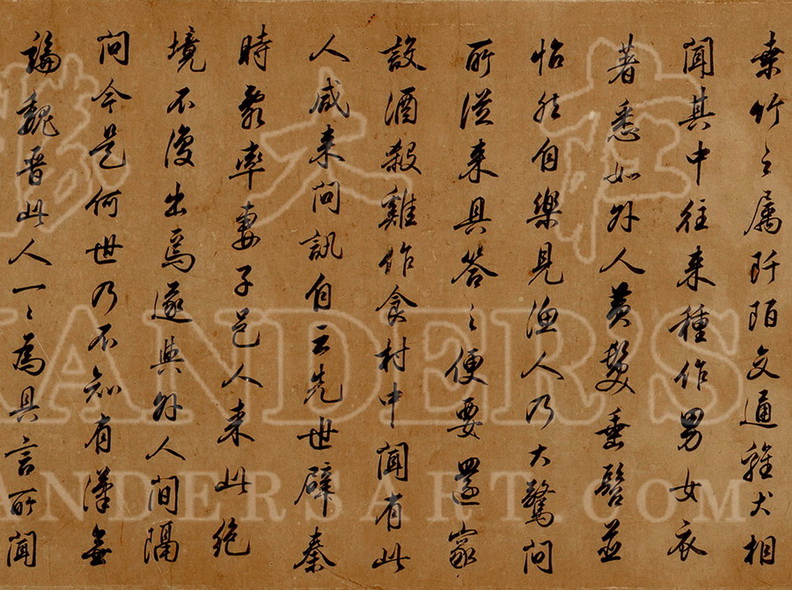 桒竹之属阡陌交通雞犬相
聞其中往来種作男女衣
著悉如外人黄髮垂髫並
怡然自樂見漁人乃大驚問
所從来具答之便要還家
設酒殺雞作食村中聞有此
人咸来問訊自云先世辟秦
時亂率妻子邑人来此絶
境不復出焉遂與外人間隔
問今是何世乃不知有漢無
論魏晋此人一一為具言所聞
ANDER'S
ANDERSART.COM